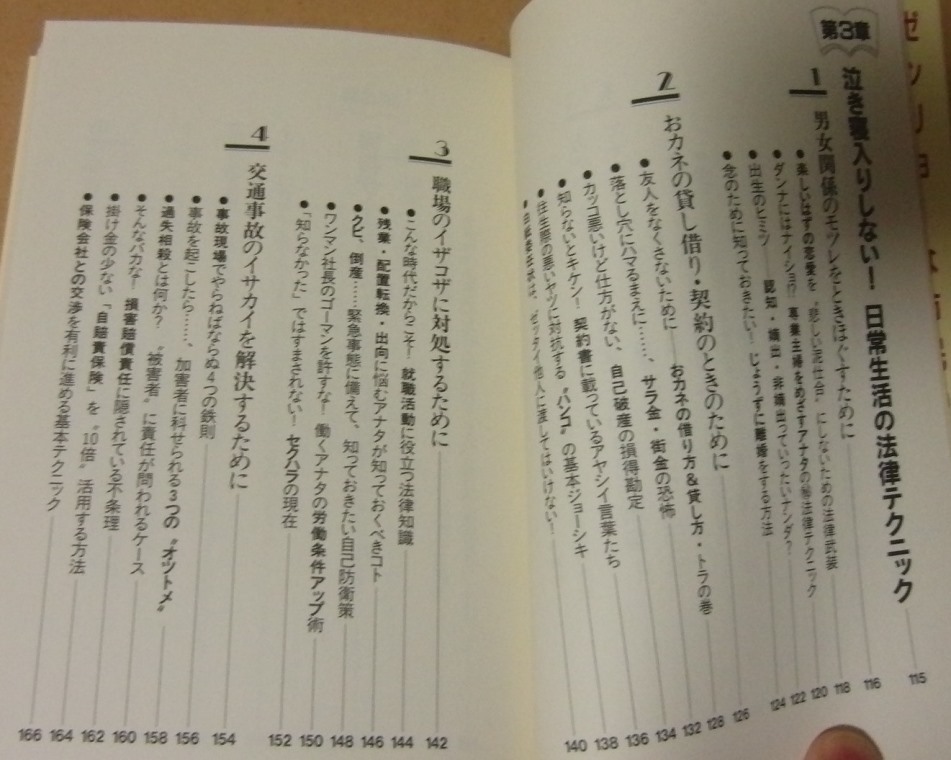 第3章
泣き寝入りしない! 日常生活の法律テクニック 115
1 男女関係のモツレをときほぐすために 116
●楽しいはずの恋愛を〝悲しい泥仕合〟にしないための法律武装 118
●ダンナにはナイショ!? 専業主婦をめざすアナタの㊙法律テクニック 120
●出生のヒミツ 認知・嫡出・非嫡出っていったいナンダ? 122
●念のために知っておきたい! じょうずに離婚をする方法 124
2 おカネの貸し借り・契約のときのために 126
●友人をなくさないために おカネの借り方&貸し方・トラの巻 128
●落とし穴にハマるまえに……、サラ金・街金の恐怖 132
●カッコ悪いけど仕方がない、自己破産の損得勘定 134
●知らないとキケン! 契約書に載っているアヤシイ言葉たち 136
●往生際の悪いヤツに対抗する〝ハンコ〟の基本ジョーシキ 138
ゼッタイ他人に渡してはいけない! 140
3 職場のイザコザに対処するために 142
●こんな時代だからこそ! 就職活動に役立つ法律知識 144
●残業・配置転換・出向に悩むアナタが知っておくべきコト 146
●クビ、倒産……緊急事態に備えて、知っておきたい自己防衛策 148
●ワンマン社長のゴーマンを許すな! 働くアナタの労働条件アップ術 150
●「知らなかった」ではすまされない! セクハラの現在 152
4 交通事故のイサカイを解決するために 154
●事故現場でやらねばならぬ4つの鉄則 156
●事故を起こしたら……、加害者に科せられる3つの〝オツトメ〟 158
●過失相殺とは何か? 〝被害者〟に責任が問われるケース 160
●そんなバカな! 損害賠償責任に隠されている不条理 162
●掛け金の少ない「自賠責保険」を〝10倍〟活用する方法 164
●保険会社との交渉を有利に進める基本テクニック 166